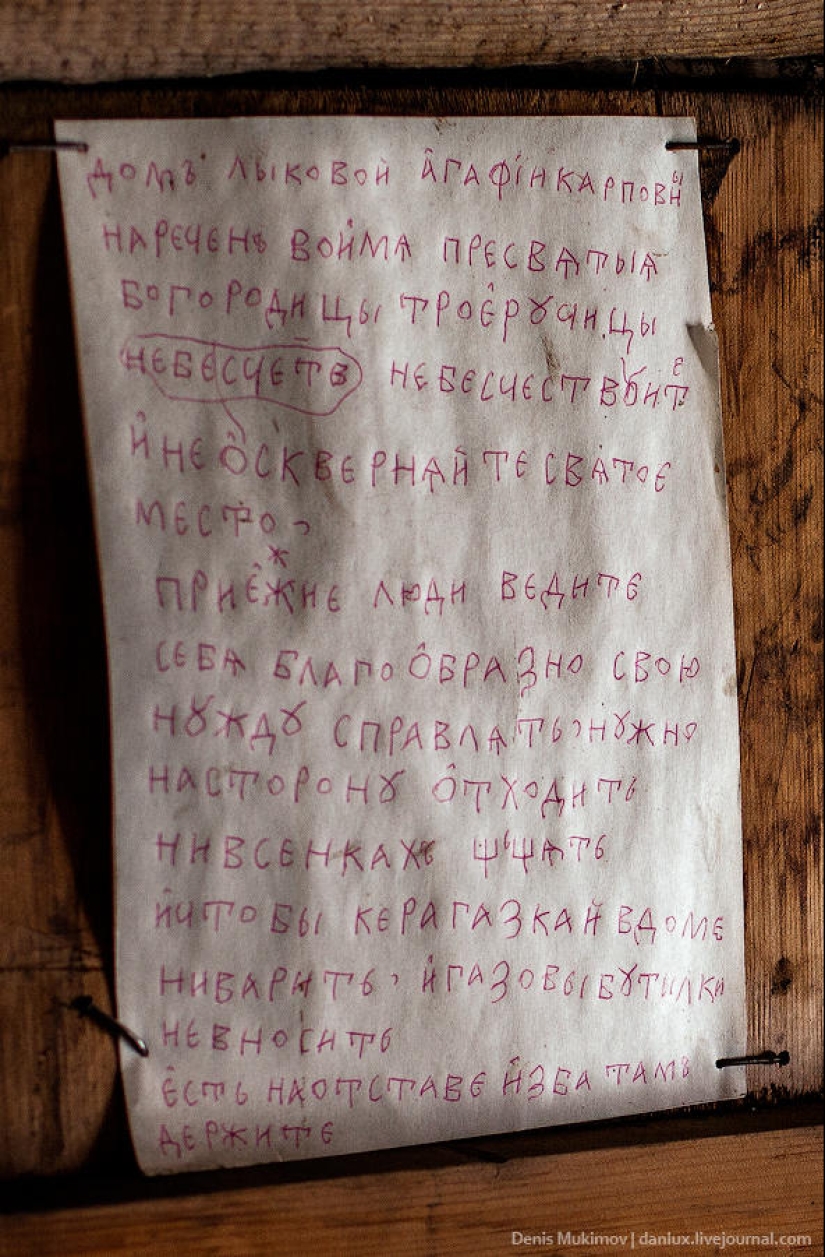 домъ лыковой а҆гафі́и карповы
нареченъ во и҆мѧ пресвѧтыѧ
богородицы трое҆рꙋчицы
небесчеств небесчествꙋите
и҆ не о҆сквернѧй те свѧтое
место,
прие҆жие люди ведите
себѧ благо о҆бразно свою
нꙋждꙋ справлѧть, нꙋжно
на сторонꙋ о҆тходить
ни в сенкахъ
и҆ чтобы керагазкай в доме
ни варить, и҆ газовы бꙋтилки
не вносить
е҆сть на отставе и҆зба тамъ
держите
Denis Mukimov | danlux.livejournal.com